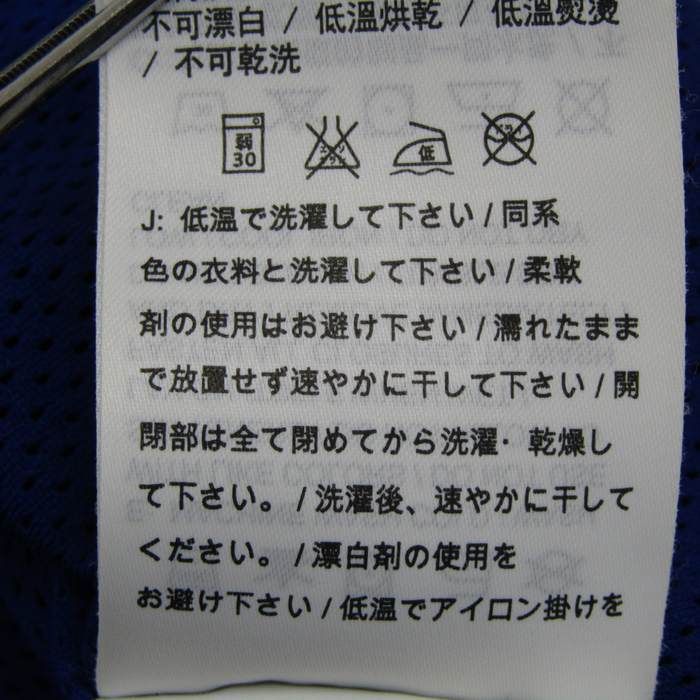 不可漂白 / 低溫烘乾 / 低溫熨燙
/ 不可乾洗
弱
30
エンソ
サラシ
低
ドライ
J: 低温で洗濯して下さい / 同系
色の衣料と洗濯して下さい / 柔軟
剤の使用はお避け下さい / 濡れたまま
で放置せず速やかに干して下さい / 開
閉部は全て閉めてから洗濯・乾燥し
て下さい。 / 洗濯後、速やかに干して
ください。 / 漂白剤の使用を
お避け下さい / 低温でアイロン掛けを